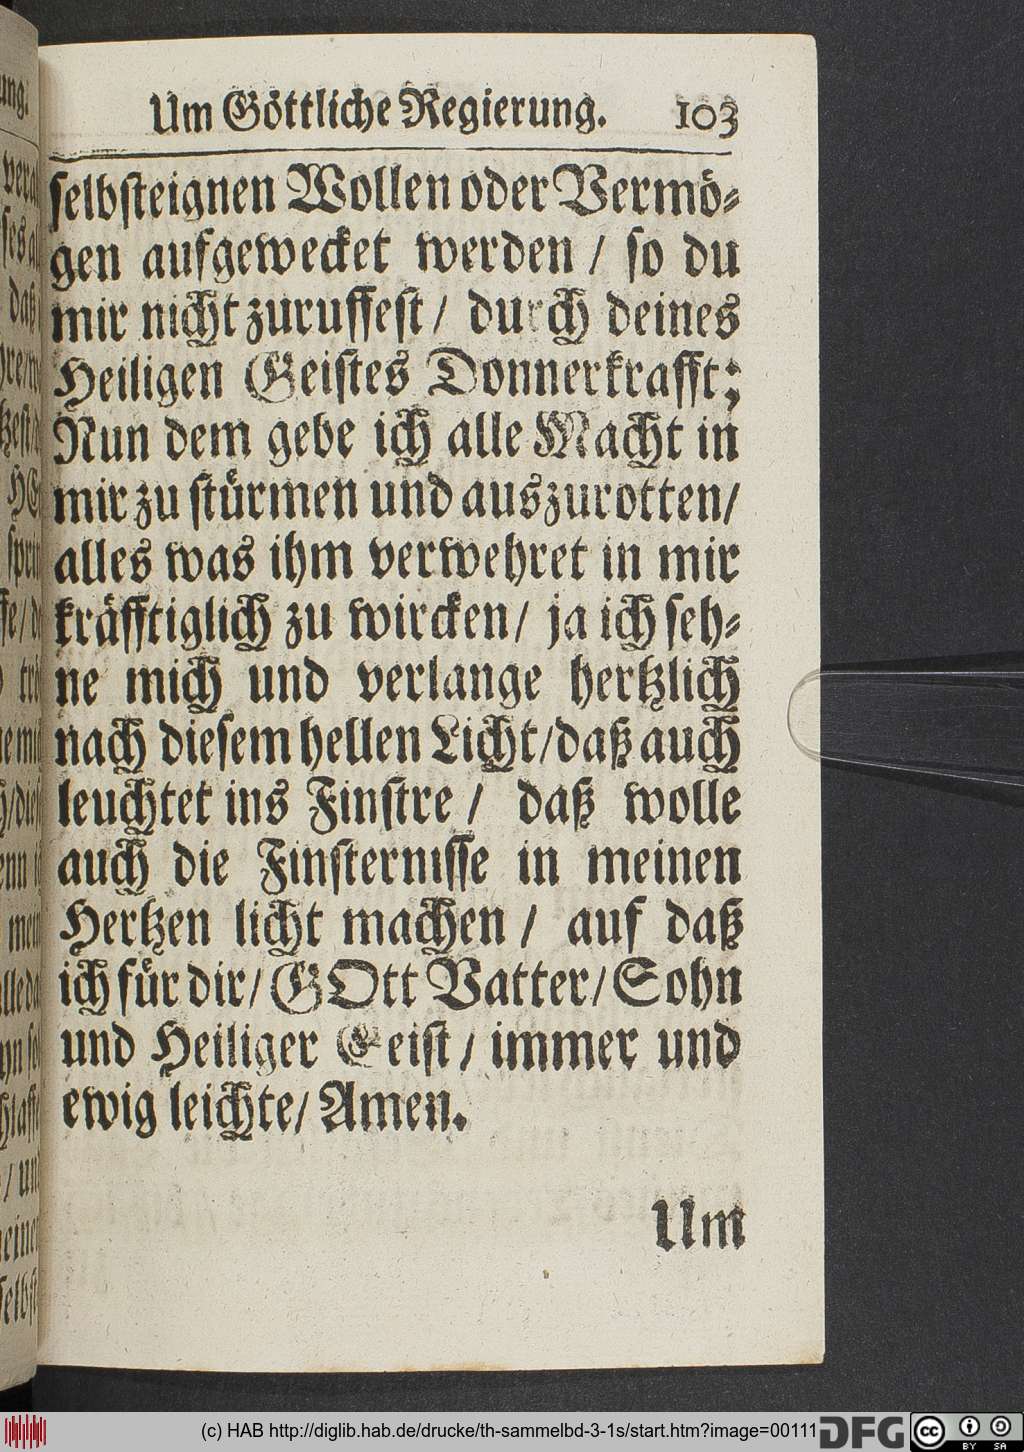 Um Göttliche Regierung. 103
selbsteignen Wollen oder Vermö⸗
gen aufgewecket werden / so du
mir nicht zuruffest / durch deines
Heiligen Geistes Donnerkrafft;
Nun dem gebe ich alle Macht in
mir zu stürmen und auszurotten/
alles was ihm verwehret in mir
kräfftiglich zu wircken/ ja ich seh⸗
ne mich und verlange hertzlich
nach diesem hellen Licht/daß auch
leuchtet ins Finstre / daß wolle
auch die Finsternisse in meinen
Hertzen licht machen / auf daß
ich für dir/ GOtt Vatter/ Sohn
und Heiliger Geist / immer und
ewig leichte/ Amen.
Um
(c) HAB http://diglib.hab.de/drucke/th-sammelbd-3-1s/start.htm?image=00111
DFG
cc
BY SA